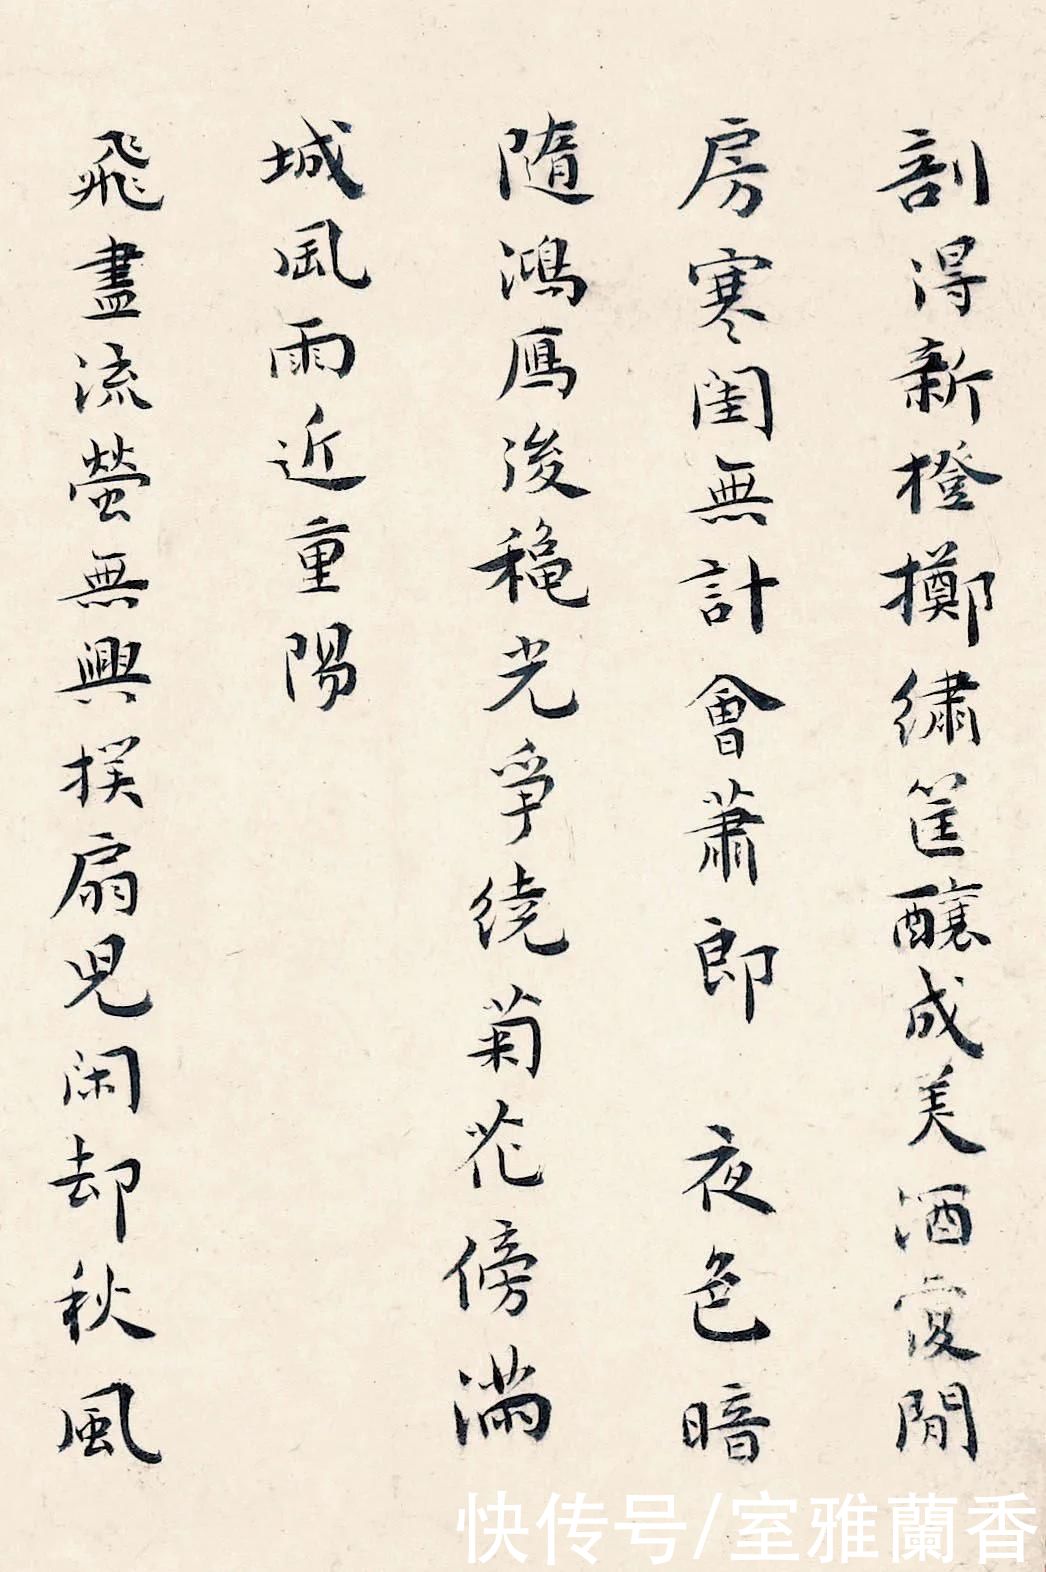 剖得新橙擲繡筐釀成美酒復閒
房寒閨無計會蕭郎 夜色暗
隨鴻鴈後穐光爭繞菊花傍滿
城風雨近重陽
飛盡流螢無興撲扇兒闲却秋風
快传号/室雅蘭香